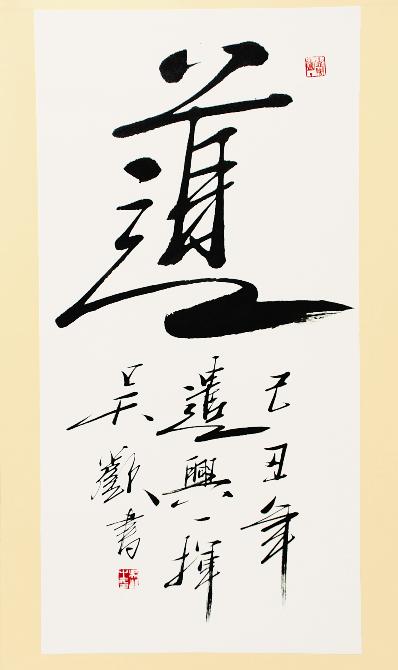 道
己丑年
遣興一揮
吳歡書